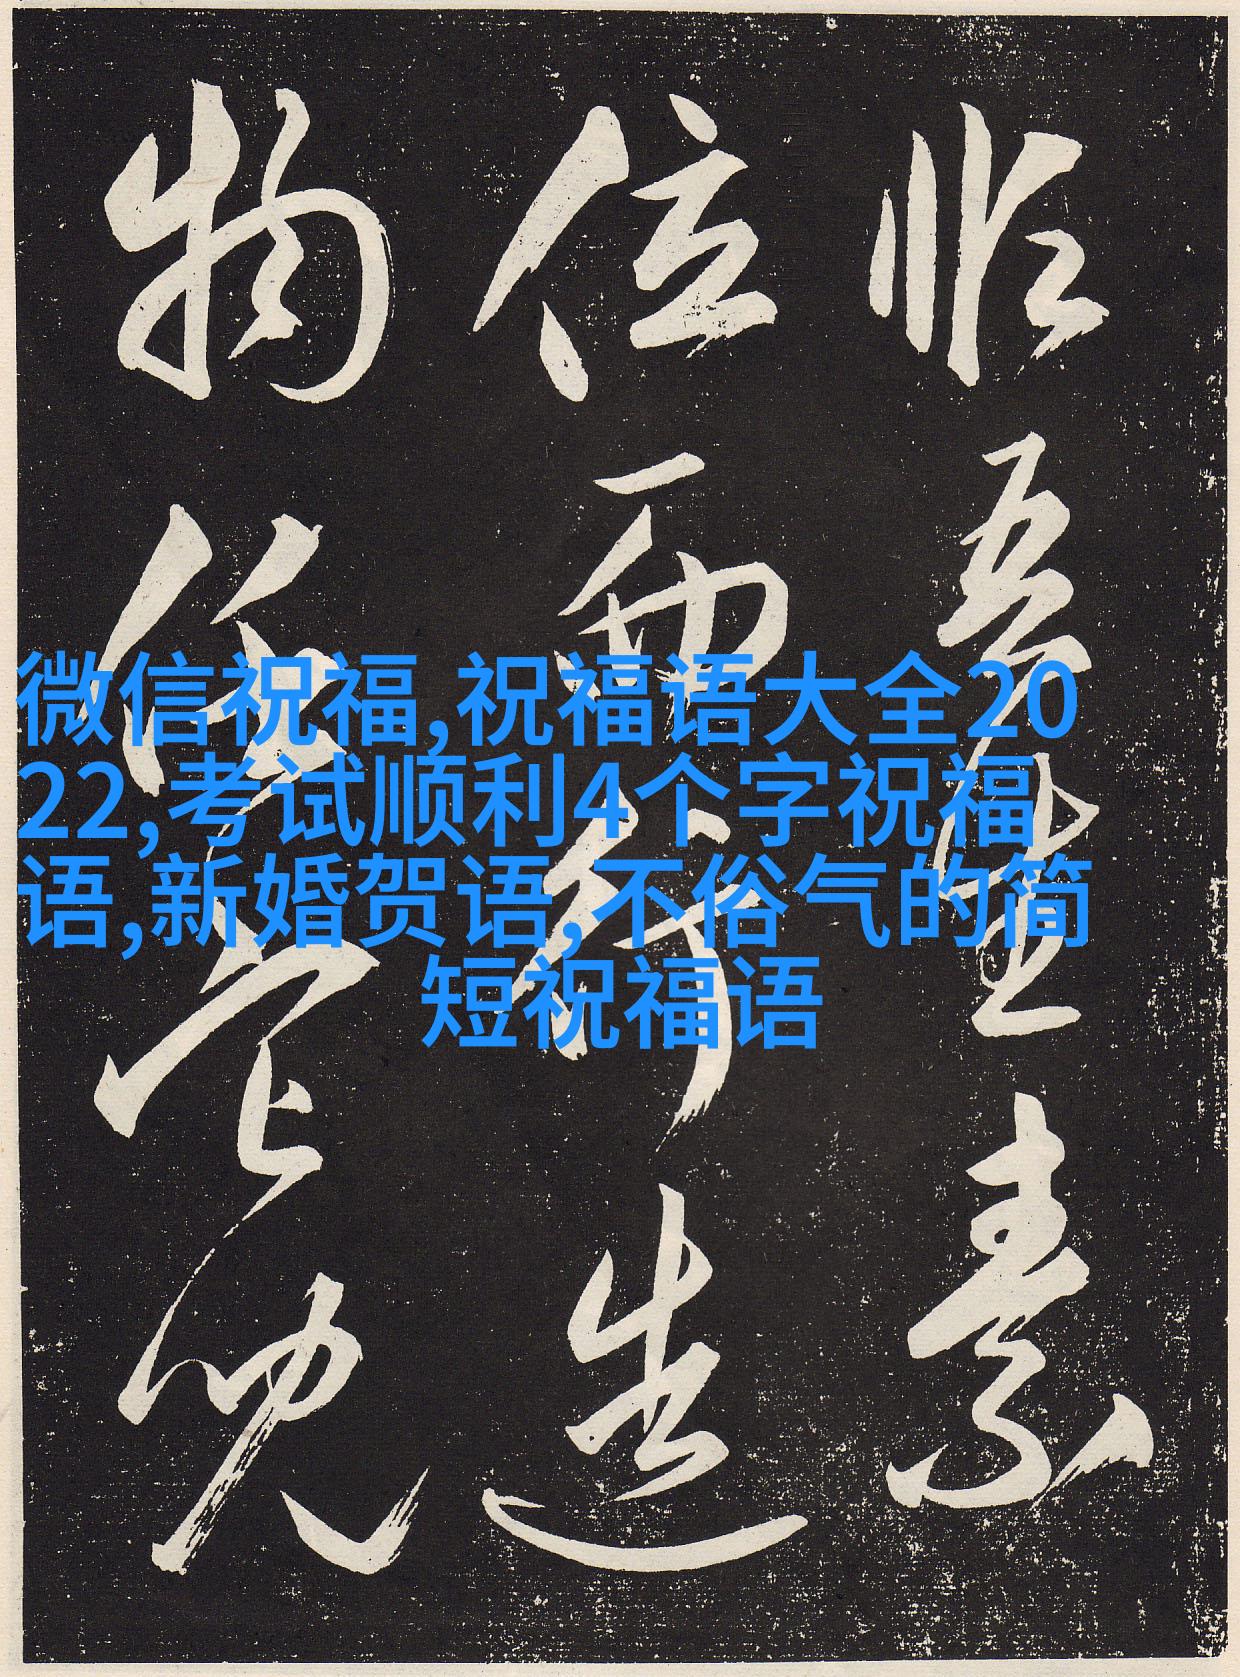 微信祝福,祝福语大全20
22,考试顺利4个字祝福
语,新婚贺语,不俗气的简
短祝福语
吾素
位而行造
物